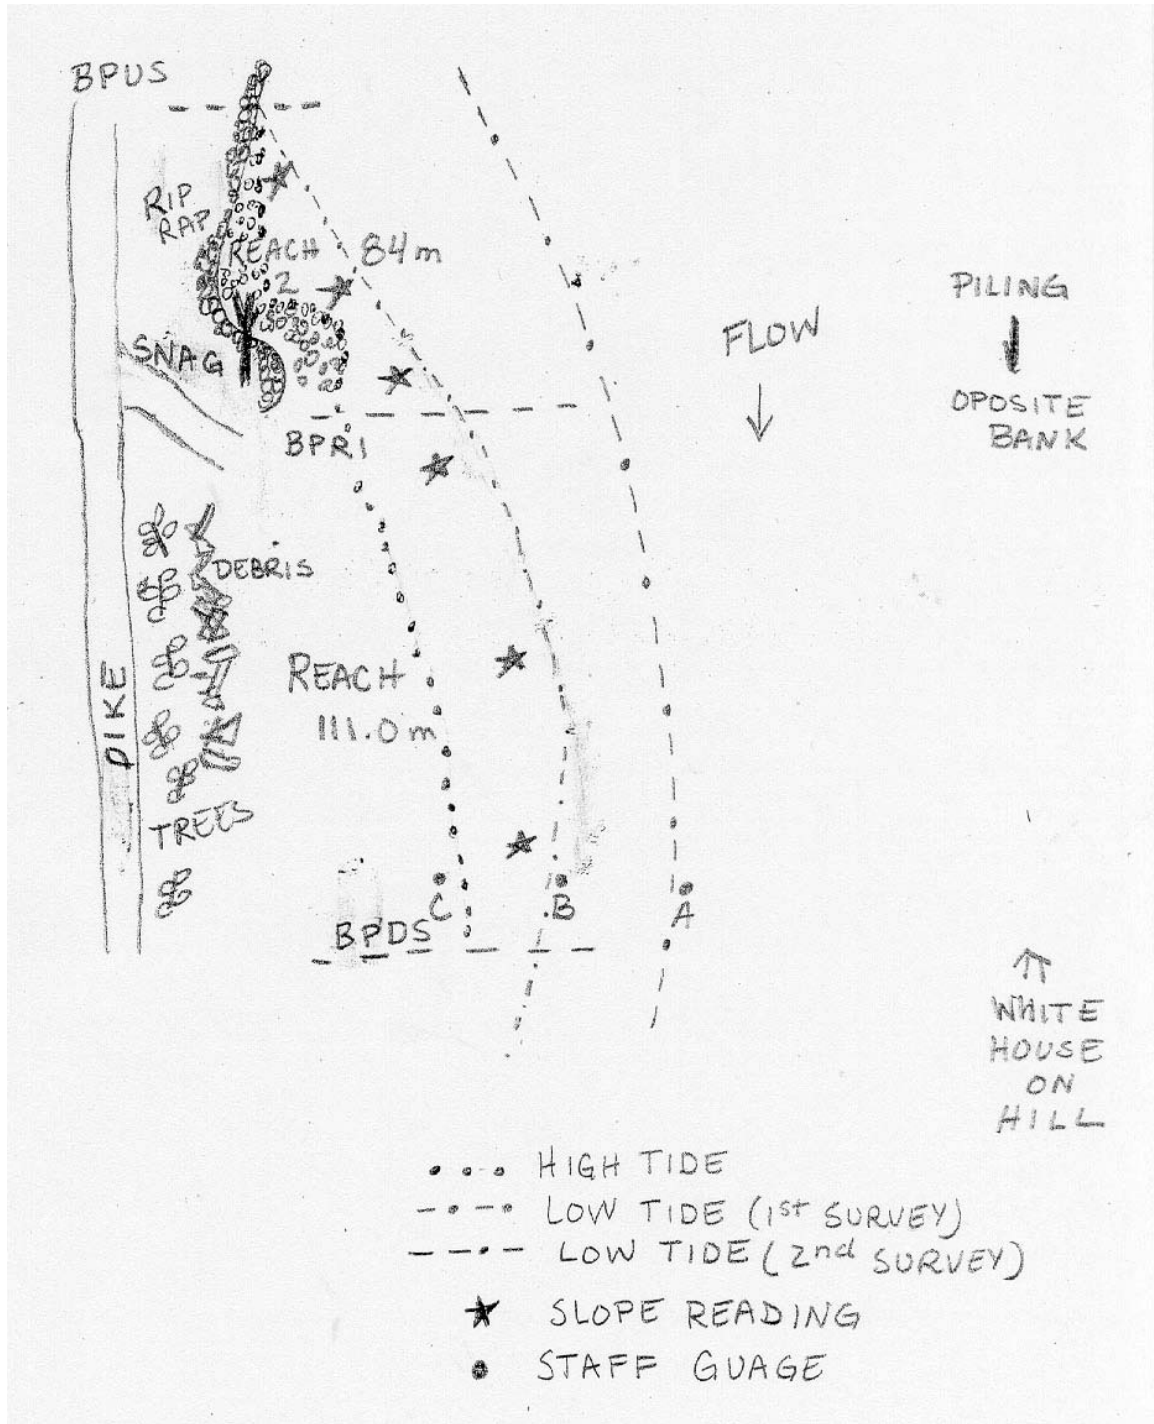 BPUS
RIP
RAP
REACH
2
84m
SNAG
BPR1
FLOW
PILING
OPOSITE
BANK
DEBRIS
REACH
111.0m
DIKE
TREES
C
B
A
BPDS
WHITE
HOUSE
ON
HILL
HIGH TIDE
LOW TIDE (1st SURVEY)
LOW TIDE (2nd SURVEY)
SLOPE READING
STAFF GUAGE